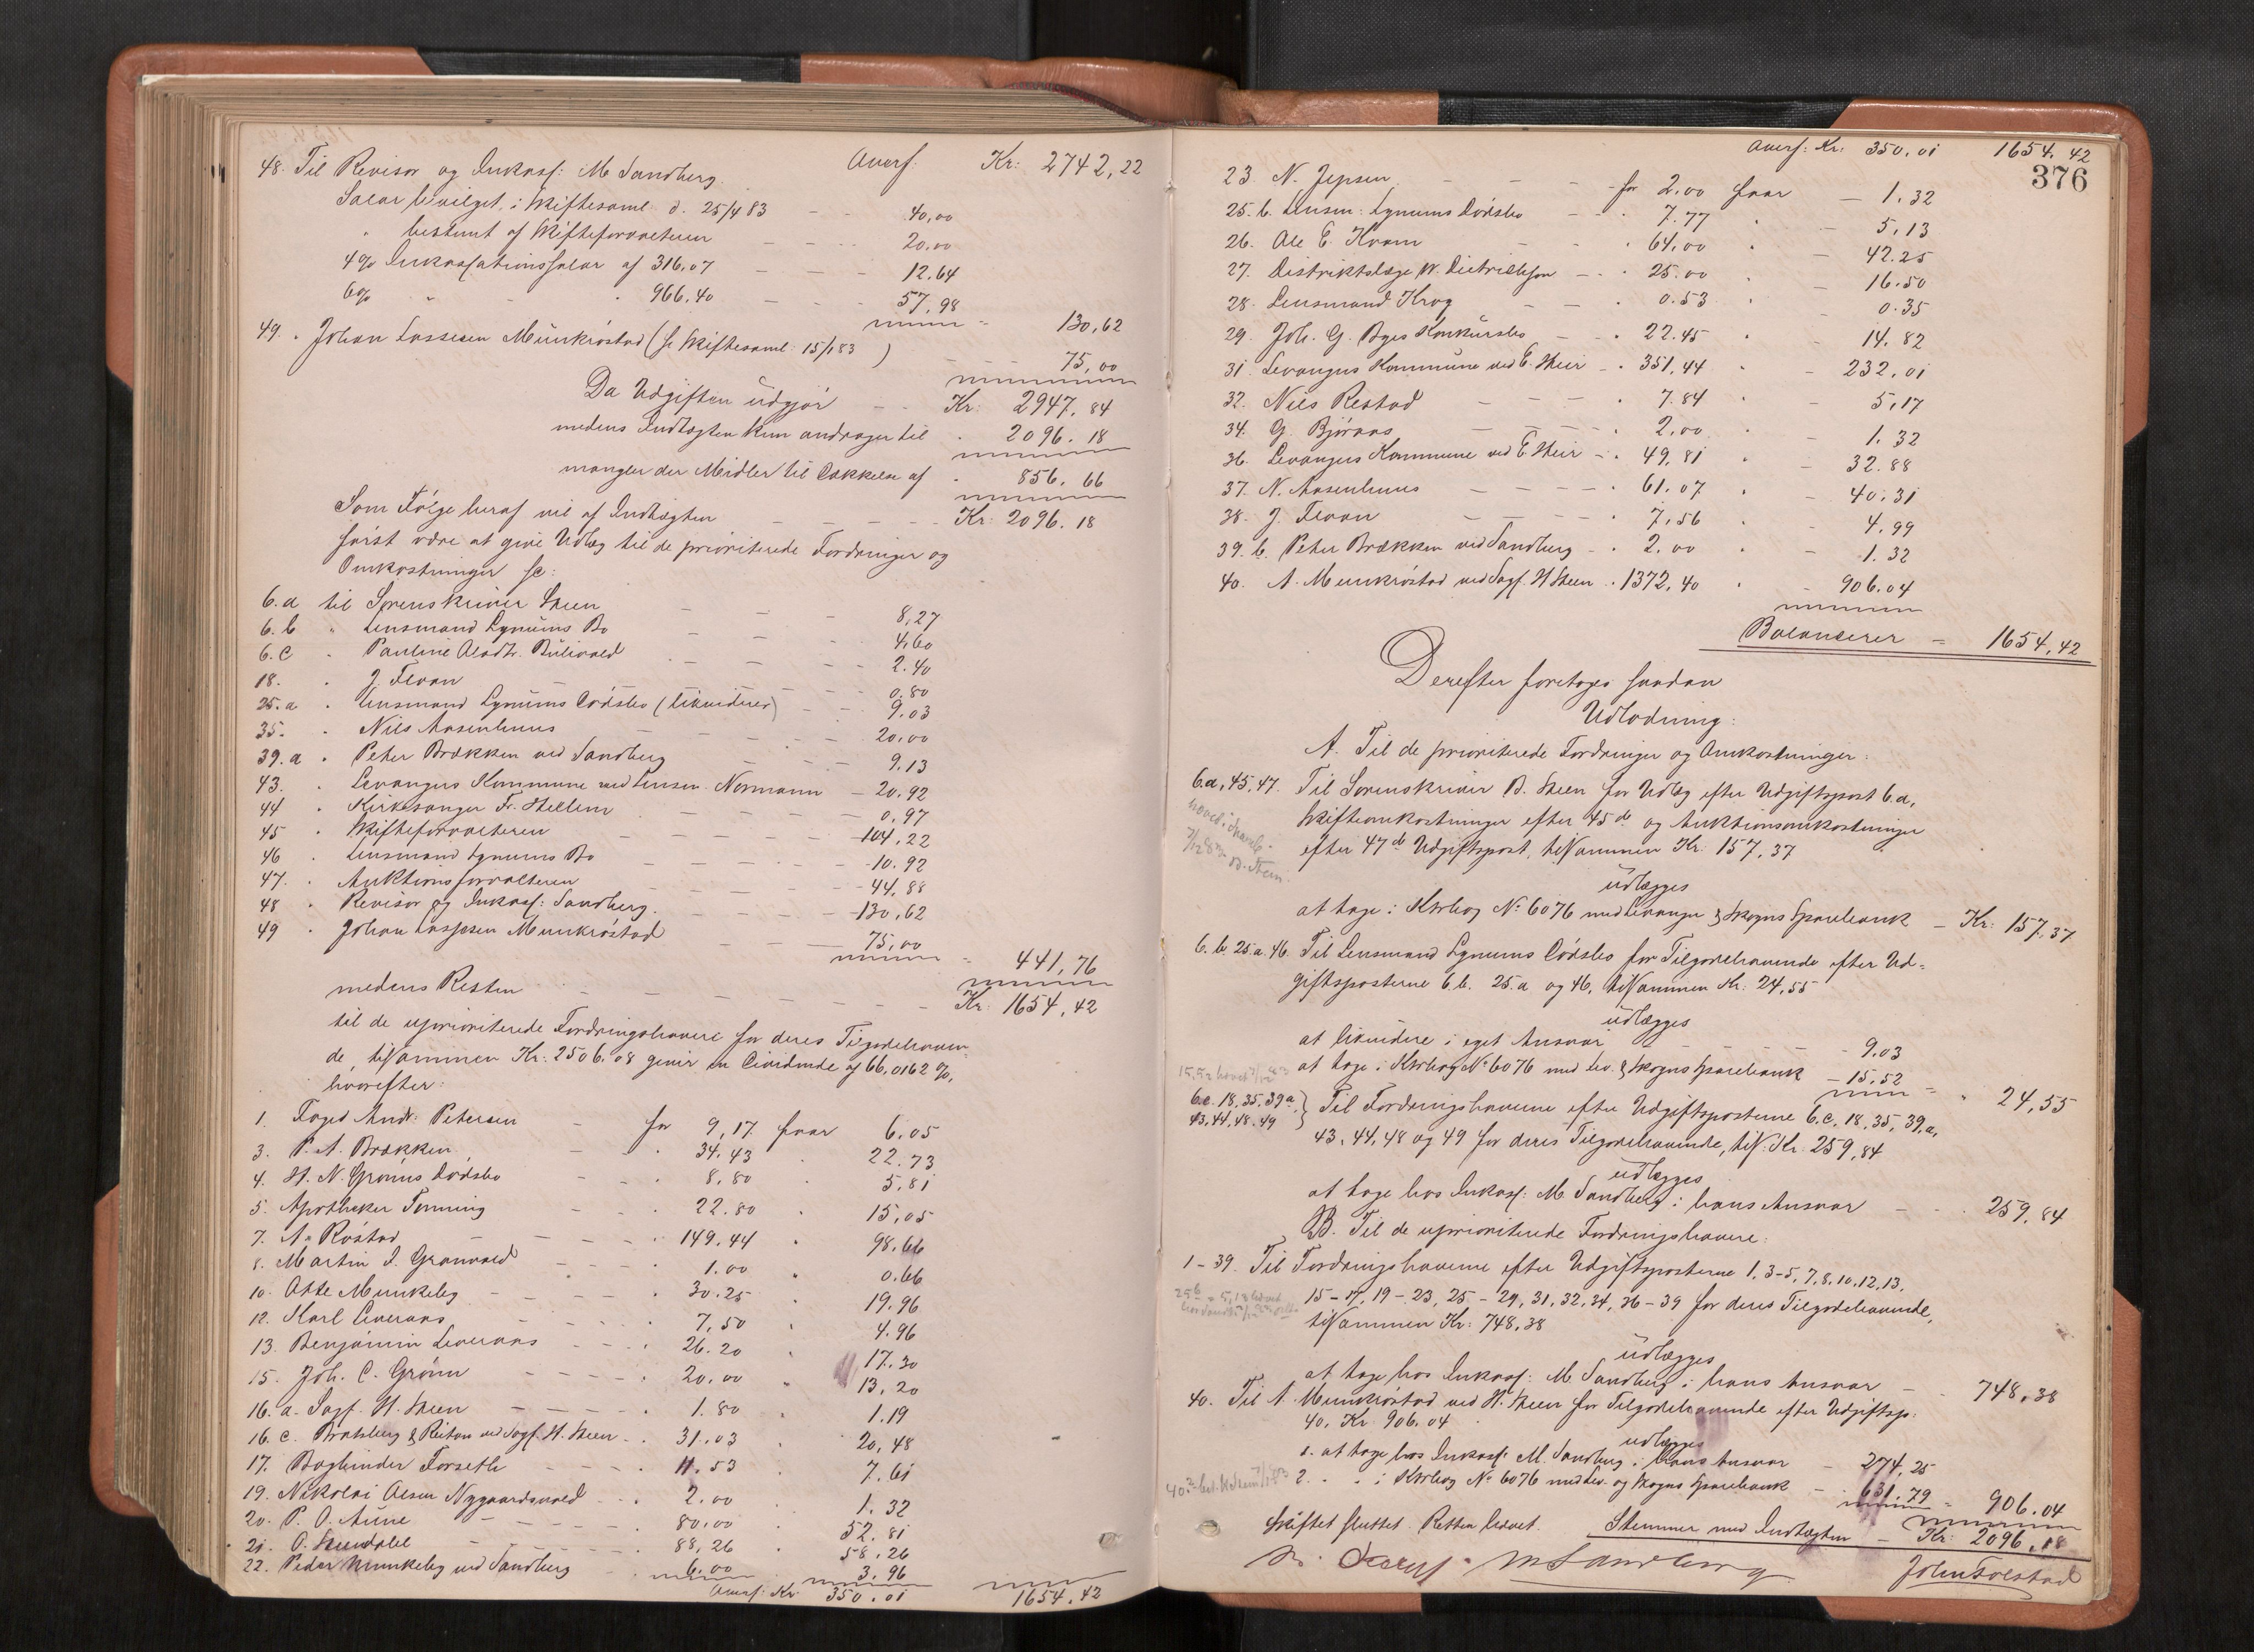 Overf. Kr: 2742,22
48. Til Revisor og Inkass: M. Sandberg
Salar bevilget i Skiftesaml. d. 25/4 83 - - 40,00
" bestemt af Skifteforvalteren - - - 20,00
4% Inkassationssalar af 316,07 - - - 12.64
6% " - . 966,40 - - - 57,98
130,62
49. . Johan Lassesen Munkrøstad (se Skiftesaml: 15/1 83) - - - 75,00
Da Udgiften udgjør - - Kr: 2947,84
medens Indtægten kun andrager til . 2096.18
mangler der Midler til Dækkelse af . 856.66
Som Følge heraf vil af Indtægten - - - - Kr: 2096.18
først være at give Udlæg til de prioriterede Fordringer og
Omkostninger se:
6.a til Sorenskriver Steen - - - 8,27
6.b " Lensmand Lynums Bo - - 4,60
6.c . Pauline Olsdtr. - - - 2.40
18. . J. Floan - - - 0.80
25.a . Lensmand Lynums Dødsbo (likviderer) - - 9.03
35. . Nils Aasenhuus - - - 20,00
39.a . Peter Brækken ved Sandberg - - - 9.13
43. . Levangers Kommune ved Lensm. Normann - 20,92
44 . Kirkesanger Fr. - - - 0,97
45 . Skifteforvalteren - - - 104,22
46 . Lensmand Lynums Bo - - - 10.92
47. . Auktionsforvalteren - - - 44,88
48 . Revisor og Inkass: Sandberg. - - - 130,62
49 . Johan Lassesen Munkrøstad - - - 75,00
441,76
medens Resten - - - - Kr: 1654,42
til de uprioriterede Fordringshavere for deres Tilgodehaven-
de, tilsammen Kr: 2506.08 giver en Dividende af 66,0162 %,
hvorefter:
1. Foged Andr: Petersen - for 9,17 faar 6,05
3. P. A. Brækken - . 34,43 . 22.73
4. H. N. Grønns Dødsbo - - . 8,80 . 5,81
5. Apotheker Tønning - - . 22.80 . 15,05
7. A. Røstad - - - . 149.44 . 98.66
8. Martin J. Granvold - - . 1.00 " 0.66
10. Otte Munkeby - - - . 30.25 . 19.96
12. Karl Leveraas - - - . 7,50 . 4.96
13. Benjamin Leveraas - - - . 26.20 . 17.30
15. Joh. C. Grønn - - - . 20,00 " 13,20
16.a. Sagf. H. Steen - - - . 1.80 . 1.19
16.c. Bratsberg & Reitan ved Sagf. H. Steen - . 31.03 . 20,48
17. Bogbinder Forseth - - - . 11.53 . 7.61
19. Nikolai Olsen Nygaardsvold - - . 2.00 . 1.32
20. P. O. Aune - - - . 80,00 . 52.81
21. O. - - - . 88,26 . 58.26
22. Peder Munkeby ved Sandberg - . 6,00 3.96
Overf: Kr 350.01 1654.42
Overf: Kr: 350,01 1654.42
376
23. N. Jepsen - - - for 2,00 faar - 1.32
25.b. Lensm: Lynums Dødsbo - - . 7.77 - 5,13
26. Ole E. Kvam - - . 64,00 . - 42.25
27. Distriktslæge W. Dietrichson - - . 25.00 . - 16.50
28. Lensmand Krog - - . 0.53 . - 0.35
29. Joh. G. Byes Konkursbo - . 22.45 . - 14.82
31. Levangers Kommune ved E. Steir - . 351,44 . - 232,01
32. Nils Restad - - - . 7.84 . - 5,17
34. G. Bjøraas - - - . 2,00 . - 1.32
36. Levangers Kommune ved E. Steir - . 49,81 . - 32.88
37. N. Aasenhuus - - - . 61.07 . - 40.31
38. J. Floan - - - . 7,56 . - 4.99
39.b. Peter Brækken ved Sandberg - . 2.00 . - 1.32
40. A. Munkrøstad ved Sagf. H Steen . 1372,40 . - 906.04
Balancerer = 1654,42
Derefter foretoges saadan
Udlodning:
A. Til de prioriterede Fordringer og Omkostninger:
6.a, 45, 47. Til Sorenskriver B. Steen for Udlæg efter Udgiftspost 6.a,
Skifteomkostninger efter 45de og Auktionsomkostninger
efter 47de Udgiftspost, tilsammen Kr: 157,37
udlægges
at tage i Ktrbog No 6076 med Levanger & Skogns Sparebank - Kr: 157,37
6.b. 25.a. 46. Til Lensmand Lynums Dødsbo for Tilgodehavende efter Ud-
giftsposterne 6.b. 25.a og 46, tilsammen Kr: 24,55
udlægges
at likvidere i eget Ansvar - - - - 9.03
at tage i Ktrbog No 6076 med Lev. & Skogns Sparebank - 15,52
" 24,55
6.c. 18. 35. 39.a. 43, 44, 48. 49 } Til Fordringshaverne efter Udgiftsposterne 6.c, 18, 35, 39.a,
43, 44, 48 og 49 for deres Tilgodehavende, tils. Kr. 259,84
udlægges
at tage hos Inkass: M. Sandberg i hans Ansvar - - . 259,84
B. Til de uprioriterede Fordringshavere:
1-39. Til Fordringshaverne efter Udgiftsposterne 1, 3-5, 7, 8, 10, 12, 13,
15-17, 19-23, 25-29, 31, 32, 34, 36-39 for deres Tilgodehavende,
tilsammen Kr: 748,38
udlægges
at tage hos Inkass: M. Sandberg i hans Ansvar - - 748,38
40. Til A. Munkrøstad ved H. Steen for Tilgodehavende efter Udgiftsp:
40, Kr. 906.04
udlægges
1. at tage hos Inkass: M. Sandberg i hans Ansvar - 274,25
2. . . i Ktrbog No 6076 med Lev. og Skogns Sparebank - 631.79
906.04
Skiftet sluttet. Retten hævet. Stemmer med Indtægten - Kr: 2096,18
M Sandberg John Tolstad